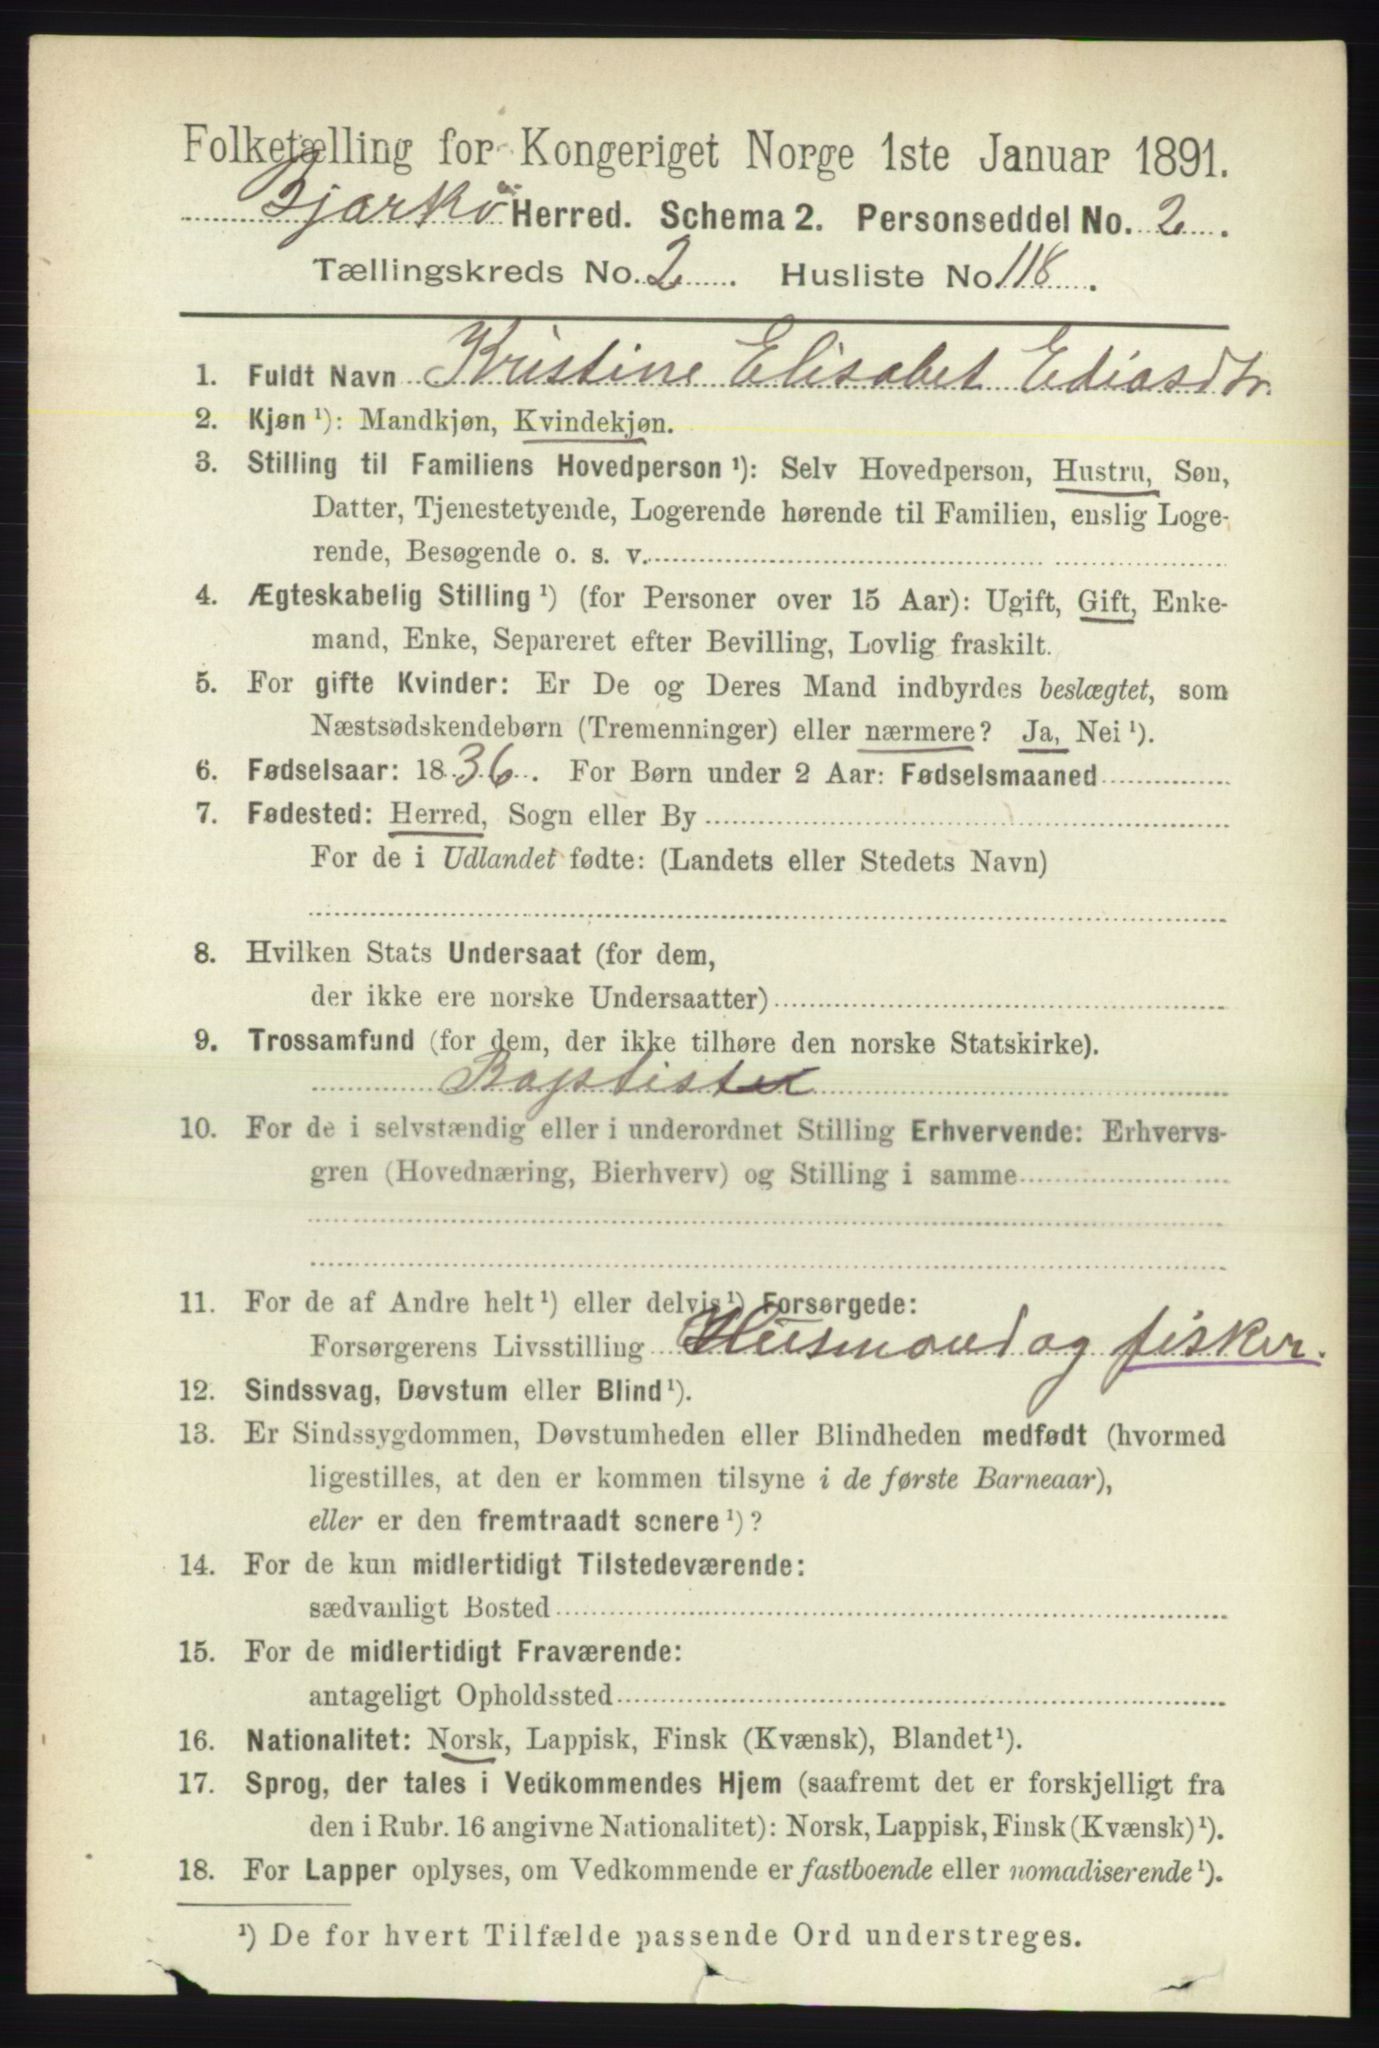 Folketælling for Kongeriget Norge 1ste Januar 1891.
Bjarkö Herred. Schema 2. Personseddel No. 2.
Tællingskreds No. 2. Husliste No 118.
1. Fuldt Navn Kristine Elisabet Ediasdtr.
2. Kjøn ¹): Mandkjøn, Kvindekjøn.
3. Stilling til Familiens Hovedperson ¹): Selv Hovedperson, Hustru, Søn,
Datter, Tjenestetyende, Logerende hørende til Familien, enslig Loge-
rende, Besøgende o. s. v.
4. Ægteskabelig Stilling ¹) (for Personer over 15 Aar): Ugift, Gift, Enke-
mand, Enke, Separeret efter Bevilling, Lovlig fraskilt.
5. For gifte Kvinder: Er De og Deres Mand indbyrdes beslægtet, som
Næstsødskendebørn (Tremenninger) eller nærmere? Ja, Nei ¹).
6. Fødselsaar: 1836. For Børn under 2 Aar: Fødselsmaaned
7. Fødested: Herred, Sogn eller By
For de i Udlandet fødte: (Landets eller Stedets Navn)
8. Hvilken Stats Undersaat (for dem,
der ikke ere norske Undersaatter)
9. Trossamfund (for dem, der ikke tilhøre den norske Statskirke).
Baptister
10. For de i selvstændig eller i underordnet Stilling Erhvervende: Erhvervs-
gren (Hovednæring, Bierhverv) og Stilling i samme
11. For de af Andre helt ¹) eller delvis ¹) Forsørgede:
Forsørgerens Livsstilling Husmand og fisker.
12. Sindssvag, Døvstum eller Blind ¹).
13. Er Sindssygdommen, Døvstumheden eller Blindheden medfødt (hvormed
ligestilles, at den er kommen tilsyne i de første Barneaar),
eller er den fremtraadt senere ¹)?
14. For de kun midlertidigt Tilstedeværende:
sædvanligt Bosted
15. For de midlertidigt Fraværende:
antageligt Opholdssted
16. Nationalitet: Norsk, Lappisk, Finsk (Kvænsk), Blandet ¹).
17. Sprog, der tales i Vedkommendes Hjem (saafremt det er forskjelligt fra
den i Rubr. 16 angivne Nationalitet): Norsk, Lappisk, Finsk (Kvænsk) ¹).
18. For Lapper oplyses, om Vedkommende er fastboende eller nomadiserende ¹).
¹) De for hvert Tilfælde passende Ord understreges.